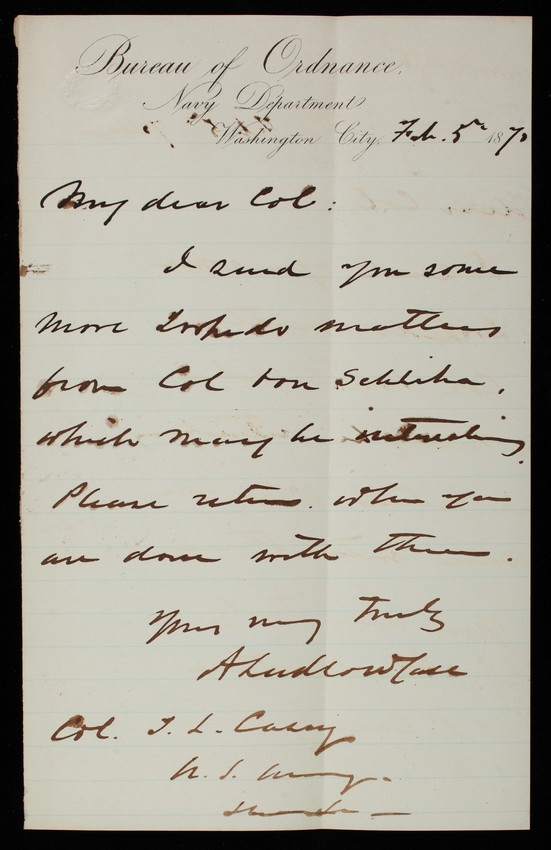 Bureau of Ordnance.
Navy Department
Washington City, Feb. 5th 1870
My dear Col:
I send you some
more Torpedo matters
from Col von Scheliha,
which may be interesting.
Please return when you
are done with them.
Yours very truly
A Ludlow Case
Col. T. L. Casey
U. S. Army.